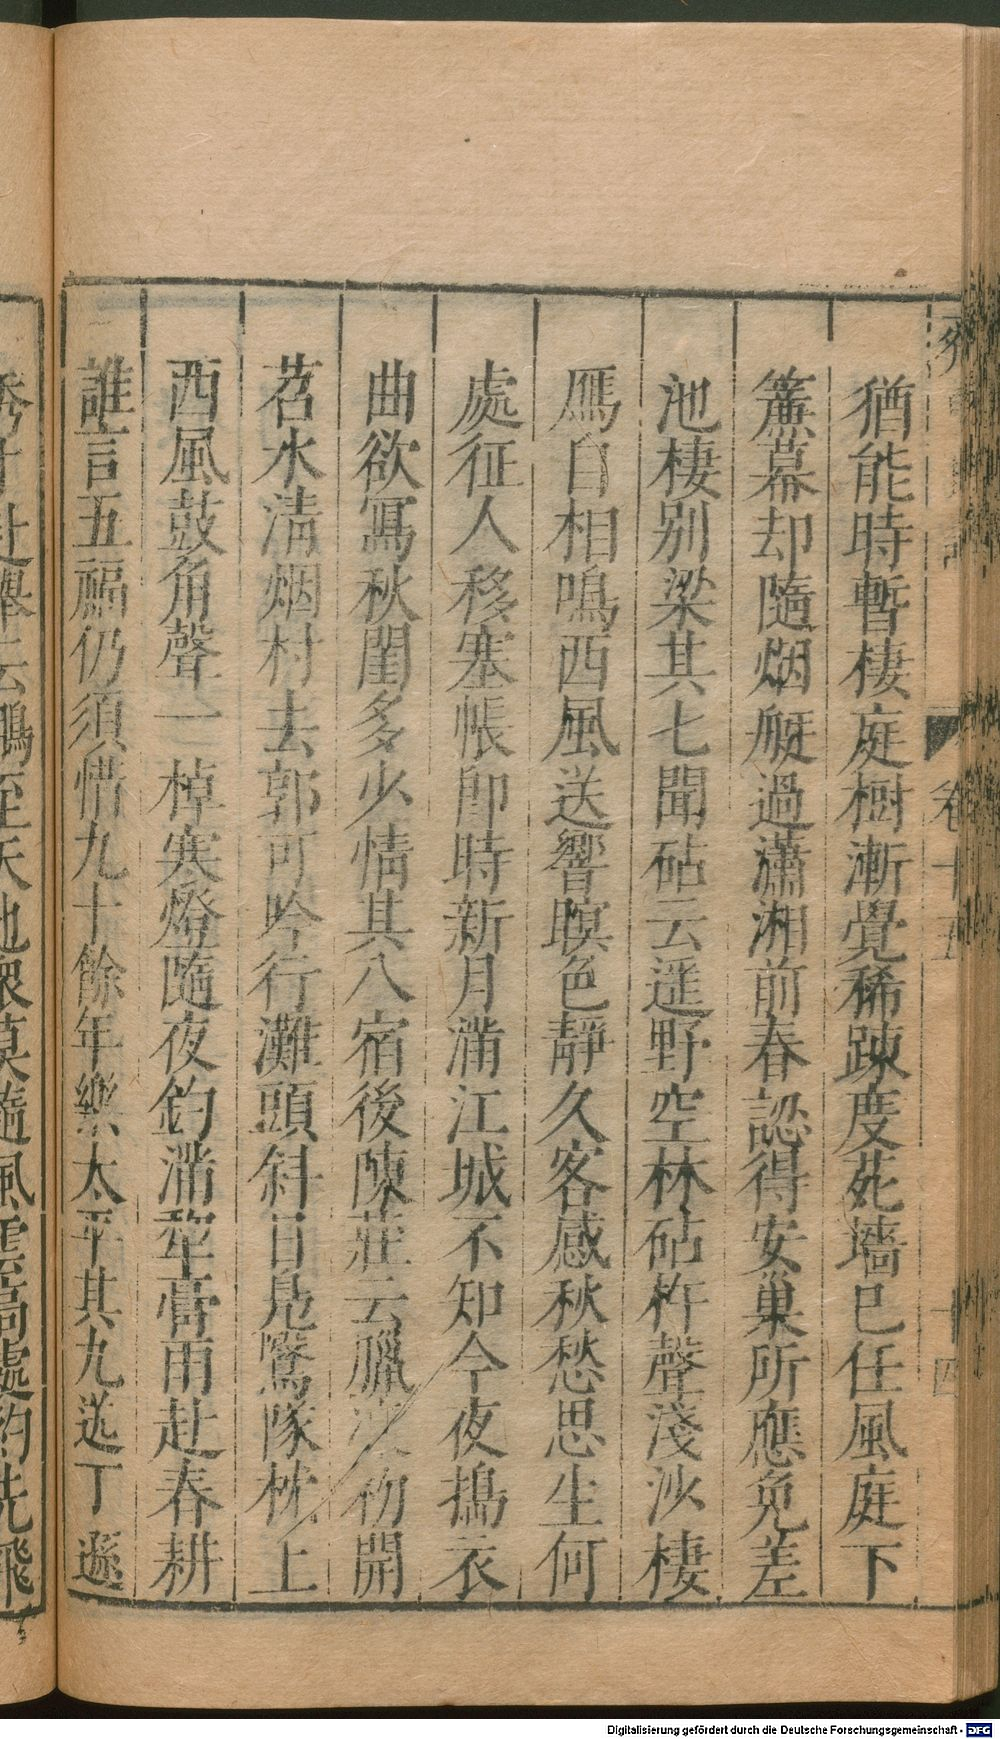 猶能時暫棲庭樹漸覺稀踈度苑墻巳任風庭下
簾幕却隨烟艇過瀟湘前春認得安巢所應免差
池棲別梁其七聞砧云遥野空林砧杵聲淺沙棲
鴈自相鳴西風送響暝色靜久客感秋愁思生何
處征人移塞帳卽時新月滿江城不知今夜搗衣
曲欲寫秋閨多少情其八宿後陳莊云臘初開
苕水清烟村去郭可吟行灘頭斜日鳧鷖隊枕上
西風鼓角聲一棹寒燈隨夜釣滿犂膏雨赴春耕
誰言五福仍須惜九十餘年樂太平其九送丁遜
秀才赴舉云鵬至天池衆莫隨風雲高處約先飛
卷十五
十四
Digitalisierung gefördert durch die Deutsche Forschungsgemeinschaft - DFG